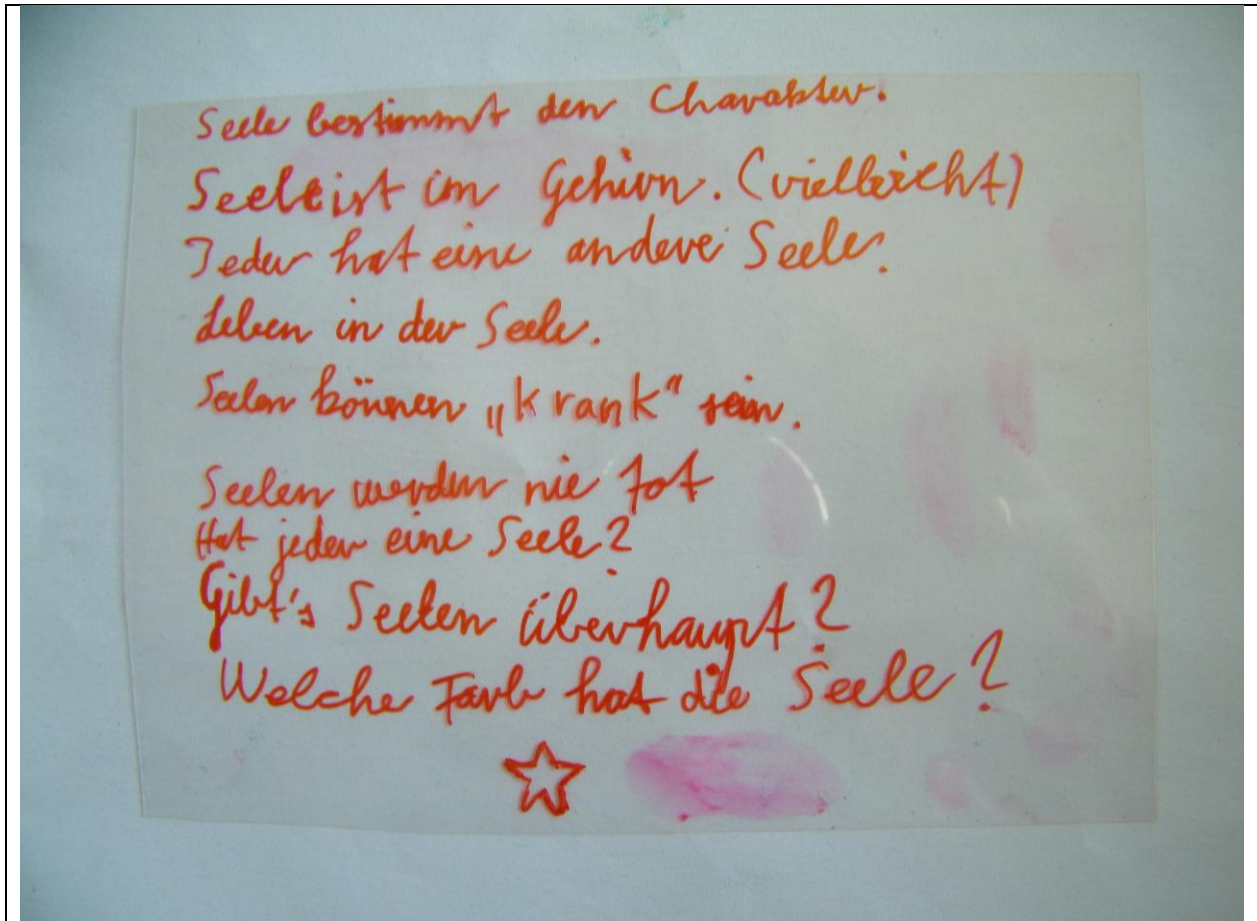 Seele bestimmt den Charakter.
Seele ist im Gehirn. (vielleicht)
Jeder hat eine andere Seele.
Leben in der Seele.
Seelen können „krank“ sein.
Seelen werden nie tot
Hat jeder eine Seele?
Gibt's Seelen überhaupt?
Welche Farbe hat die Seele?